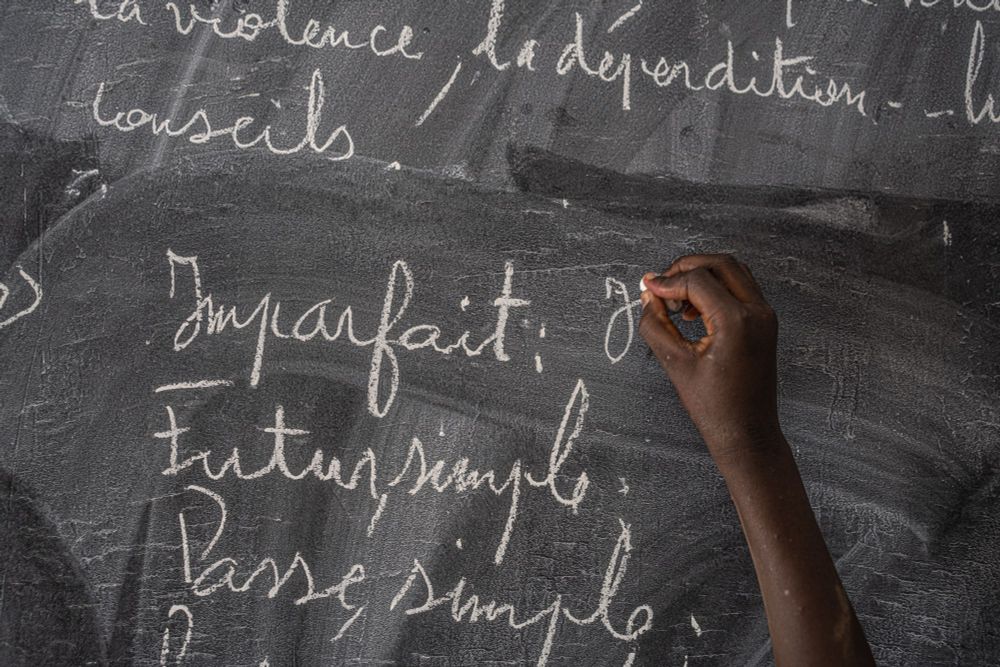 la violence, la déperdition - -
Conseils.
Imparfait : J
Futur simple :
Passé simple :
P